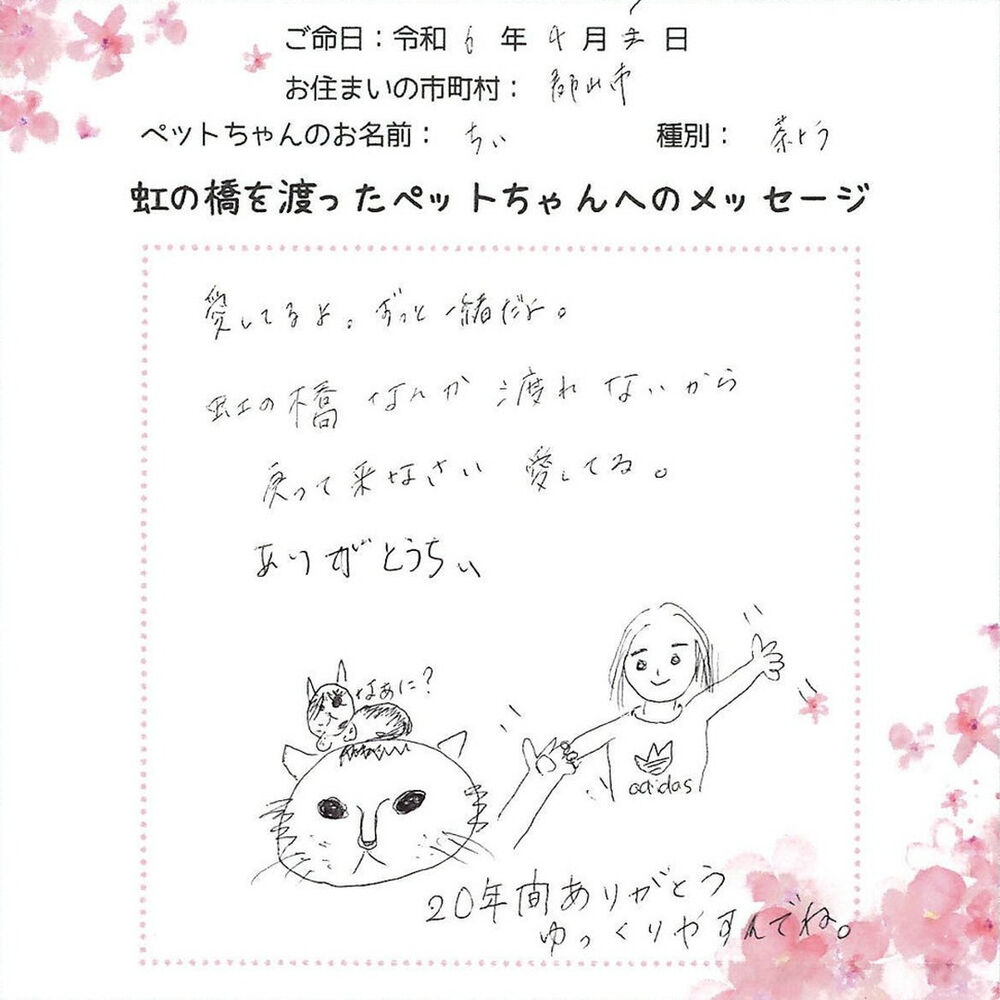 ご命日：令和 6 年 4 月 日
お住まいの市町村： 郡山市
ペットちゃんのお名前： ちぃ 種別： 茶トラ
虹の橋を渡ったペットちゃんへのメッセージ
愛してるよ。ずっと一緒だよ。
虹の橋なんか渡れないから
戻って来なさい 愛してる。
ありがとうちぃ
なぁに?
adidas
20年間ありがとう
ゆっくりやすんでね。